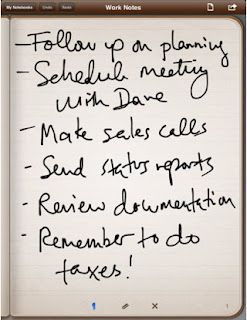 My Notebooks Undo Redo Work Notes
- Follow up on planning
- Schedule meeting
with Dave
- Make sales calls
- Send status reports
- Review documentation
- Remember to do
taxes!
1